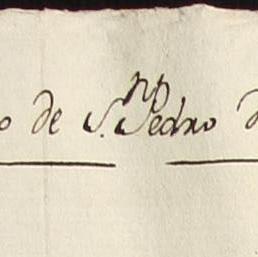 o de S.n Pedro d